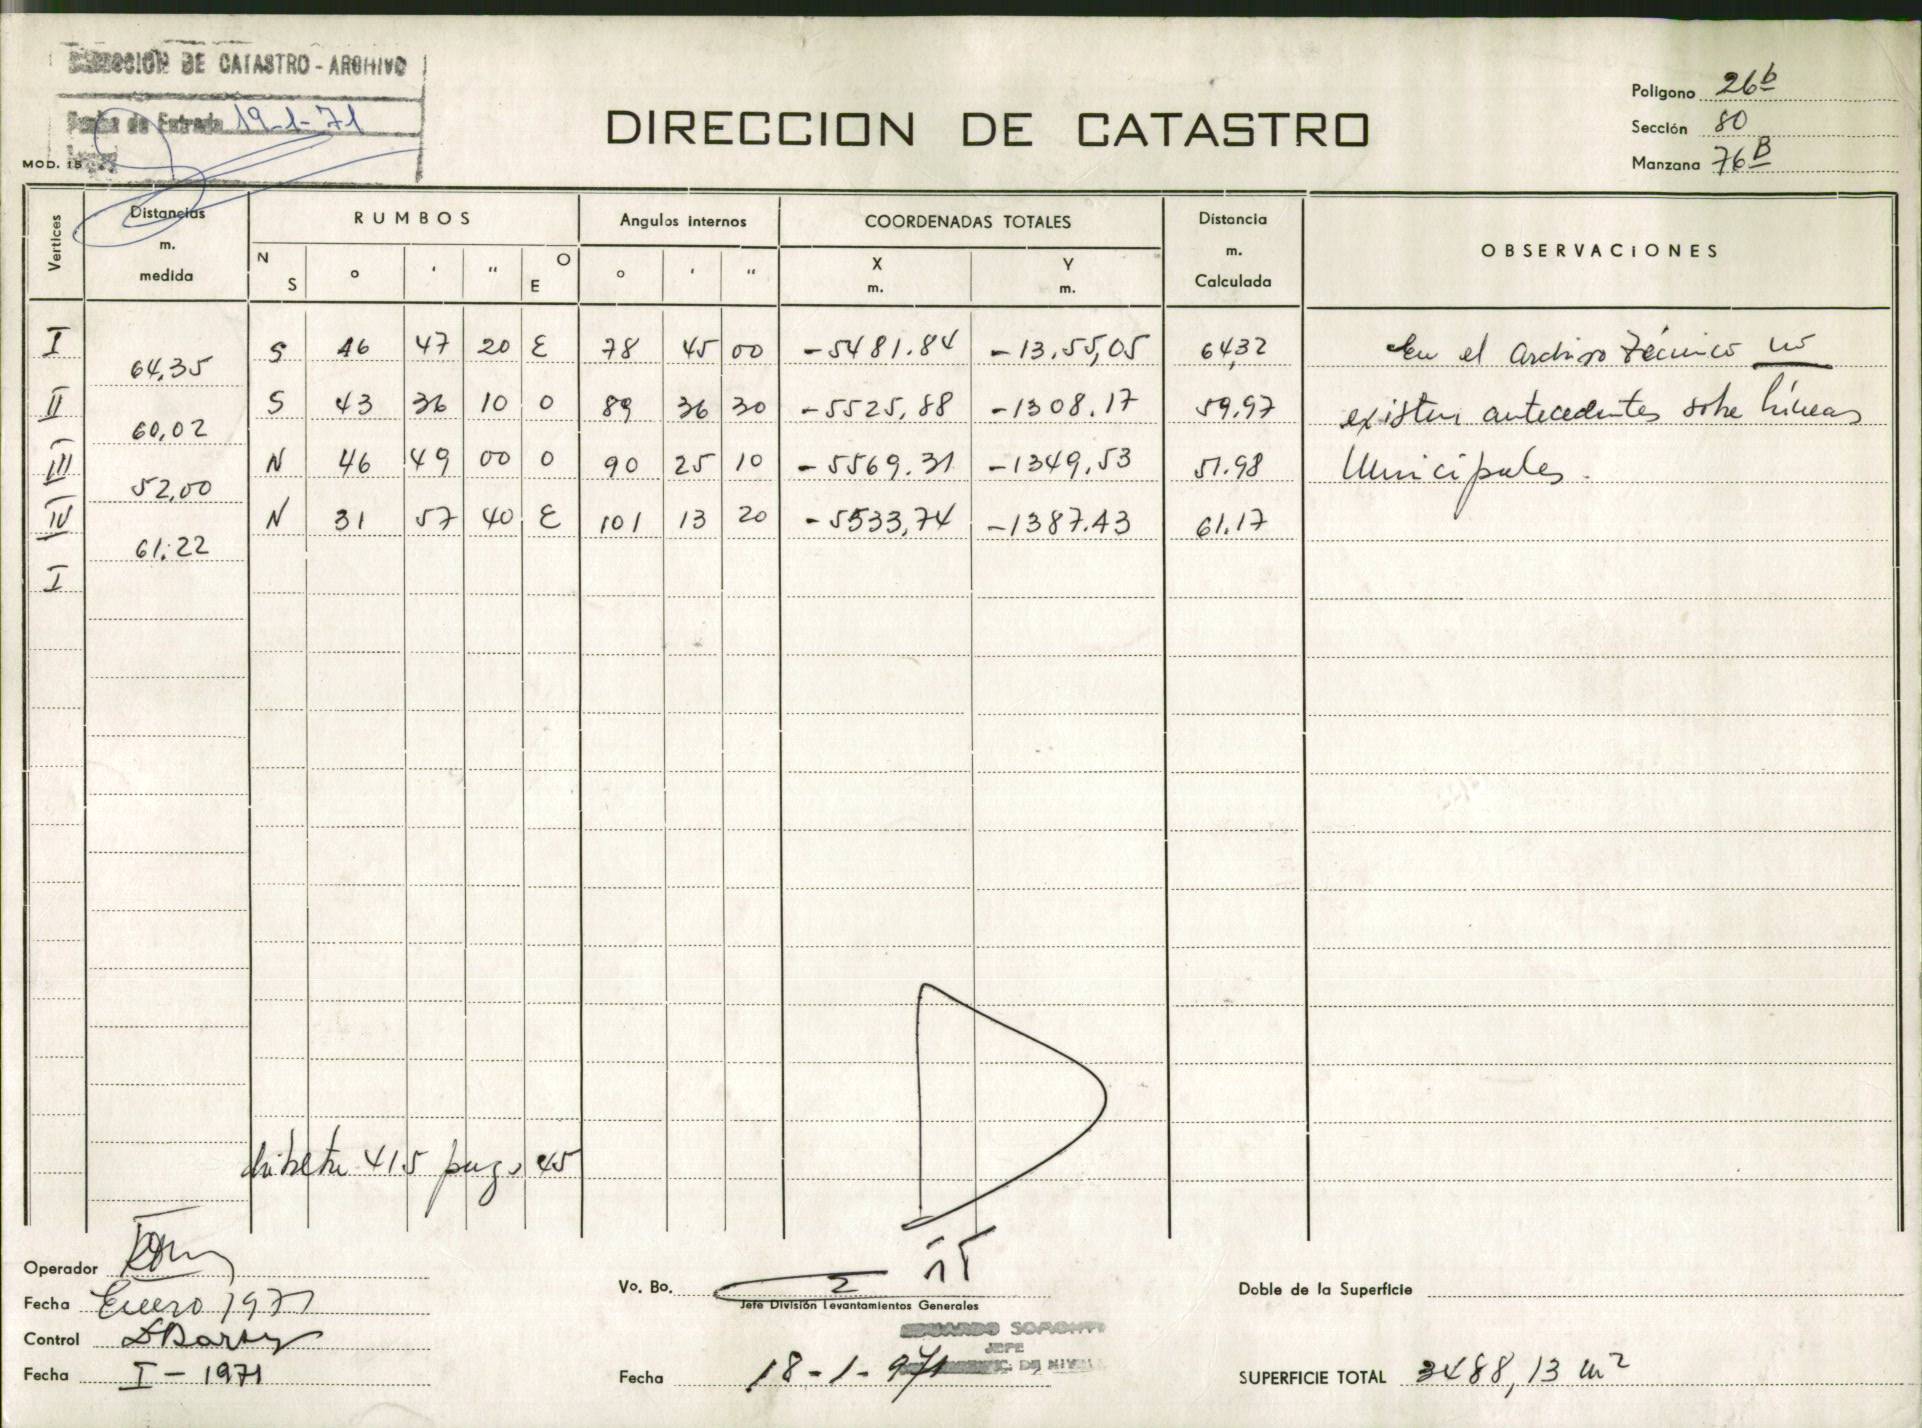 DIRECCION DE CATASTRO - ARCHIVO
Fecha de Entrada 19-1-71
MOD. 15
DIRECCION DE CATASTRO
Poligono 26b
Sección 80
Manzana 76B
Vertices
Distancias m. medida
RUMBOS
Angulos internos
COORDENADAS TOTALES
Distancia m. Calculada
OBSERVACIONES
N S ° ' " O E ° ' " X m. Y m.
I S 46 47 20 E 78 45 00 -5481.84 -13.55,05 64,32 En el archivo técnico no
64,35
II S 43 36 10 O 89 36 30 -5525,88 -1308.17 59.97 existen antecedentes sobre líneas
60,02
III N 46 49 00 O 90 25 10 -5569.31 -1349,53 51.98 Municipales.
52,00
IV N 31 57 40 E 101 13 20 -5533,74 -1387.43 61.17
61,22
I
libreta 415 pag. 45
Operador
Fecha Enero 1971
Control
Fecha I - 1971
Vo. Bo.
Jefe División Levantamientos Generales
EDUARDO
JEFE
Fecha 18-1-971
Doble de la Superficie
SUPERFICIE TOTAL 3488,13 m2